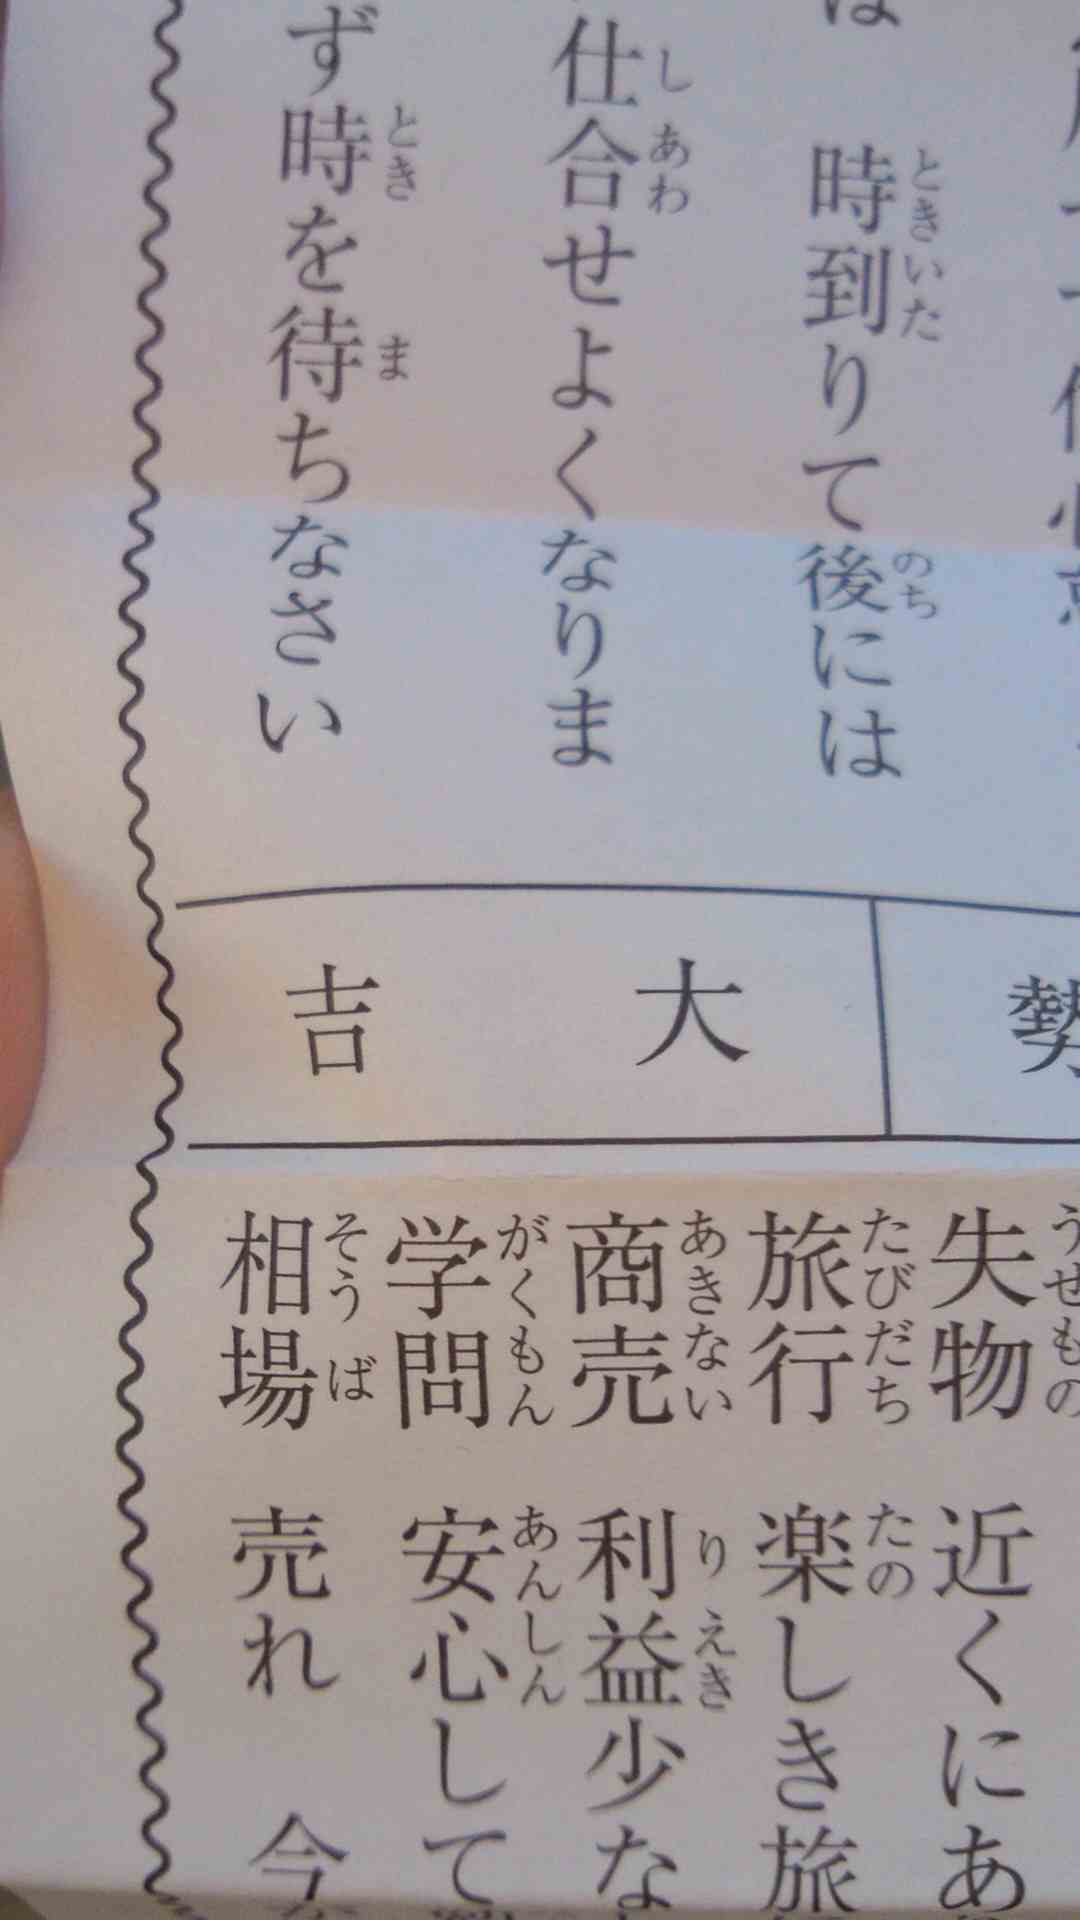 は 時到りて後には
仕合せよくなりま
ず時を待ちなさい
勢
大吉
失物 近くにあ
旅行 楽しき旅
商売 利益少な
学問 安心して
相場 売れ 今
ときいた
のち
しあわ
とき
ま
うせもの
たびだち
たの
あきない
りえき
がくもん
あんしん
そうば